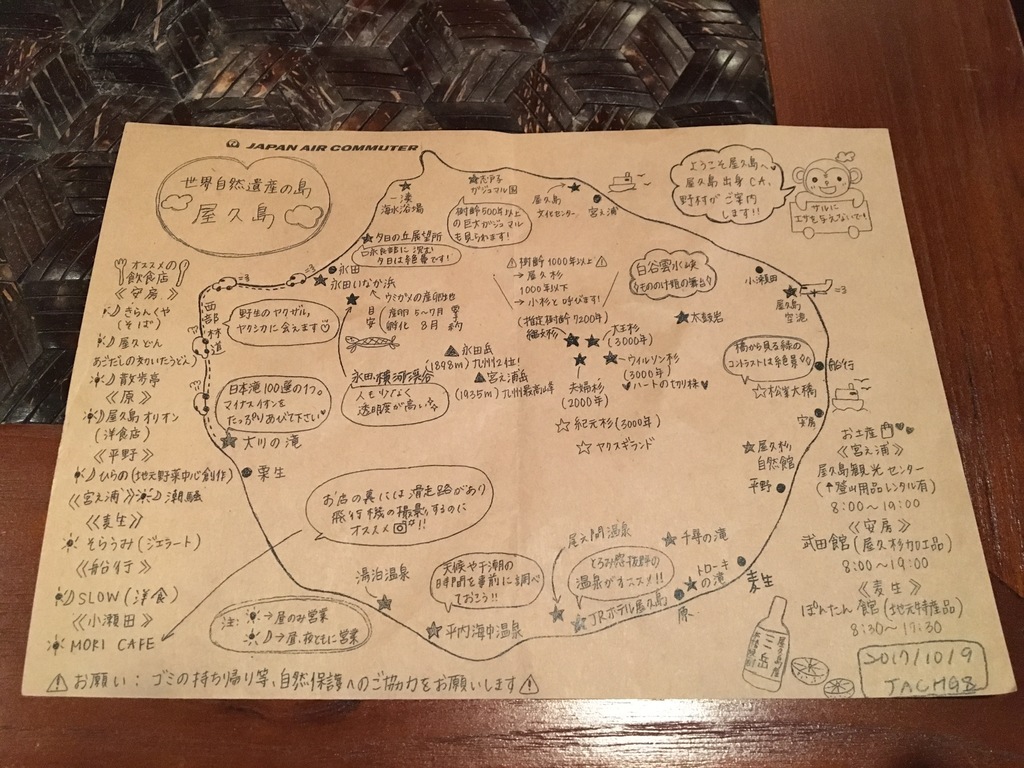 JAPAN AIR COMMUTER
世界自然遺産の島
屋久島
ようこそ屋久島へ♥
屋久島出身CA、
野村がご案内
します!!
サルに
エサを与えないで!
一湊
海水浴場
志戸子
ガジュマル園
樹齢500年以上
の巨大ガジュマル
も見られます!
屋久島
文化センター
宮之浦
夕日の丘展望所
口永良部に沈む
夕日は絶景です!
永田
永田いなか浜
ウミガメの産卵地
目安
産卵 5~7月
孵化 8月
西部林道
野生のヤクザル、
ヤクシカに会えます♡
永田・横河渓谷
人も少なく
透明度が高い☆
日本滝100選の1つ。
マイナスイオンを
たっぷりあびて下さい♥
大川の滝
栗生
⚠樹齢1000年以上⚠
→屋久杉
1000年以下
→小杉と呼びます!
(推定樹齢7200年)
縄文杉
大王杉
(3000年)
ウィルソン杉
(3000年)
♥ハートの切り株♥
夫婦杉
(2000年)
☆紀元杉(3000年)
☆ヤクスギランド
▲永田岳
(1898m)九州2位!
▲宮之浦岳
(1935m)九州最高峰
白谷雲水峡
もののけ姫の舞台
太鼓岩
小瀬田
屋久島
空港
橋から見る緑の
コントラストは絶景
☆松峯大橋
船行
安房
屋久杉
自然館
平野
お店の裏には滑走路があり
飛行機の撮影するのに
オススメ!!
湯泊温泉
天候や干潮の
時間を事前に調べ
ておこう!!
平内海中温泉
尾之間温泉
とろみ感抜群の
温泉がオススメ!!
JRホテル屋久島
千尋の滝
トローキ
の滝
原
麦生
オススメの
飲食店
《安房》
きらんくや
(そば)
屋久どん
あごだしの効いたうどん)
散歩亭
《原》
屋久島オリオン
(洋食店)
《平野》
ひらの(地元野菜中心創作)
《宮之浦》潮騒
《麦生》
そらうみ(ジェラート)
《船行》
SLOW(洋食)
《小瀬田》
MORI CAFE
注:→昼のみ営業
→昼、夜ともに営業
お土産
《宮之浦》
屋久島観光センター
(↑登山用品レンタル有)
8:00~19:00
《安房》
武田館(屋久杉加工品)
8:00~19:00
《麦生》
ぽんたん館(地元特産品)
8:30~17:30
屋久島産
三岳
⚠お願い:ゴミの持ち帰り等、自然保護へのご協力をお願いします⚠
2017/10/9
JACH98